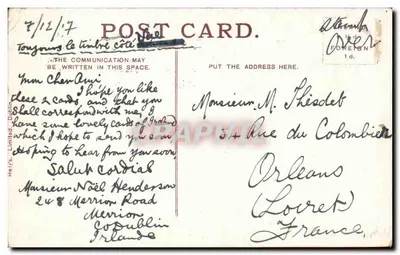 7/12/07
POST CARD.
Toujours le timbre côté Vue
THE COMMUNICATION MAY
BE WRITTEN IN THIS SPACE.
PUT THE ADDRESS HERE.
FOREIGN
1 d.
Mon Cher Ami
I hope you like
these 2 cards, and that you
shall correspond with me, I
have some lovely cards of Ireland
which I hope to send you soon
Hoping to hear from you soon
Salut Cordial
Monsieur Noël Henderson
248 Merrion Road
Merrion
Co Dublin
Irlande
Monsieur M. Thisdet
54 Rue du Colombier
Orleans
(Loiret)
France
Hely's Limited, Dublin